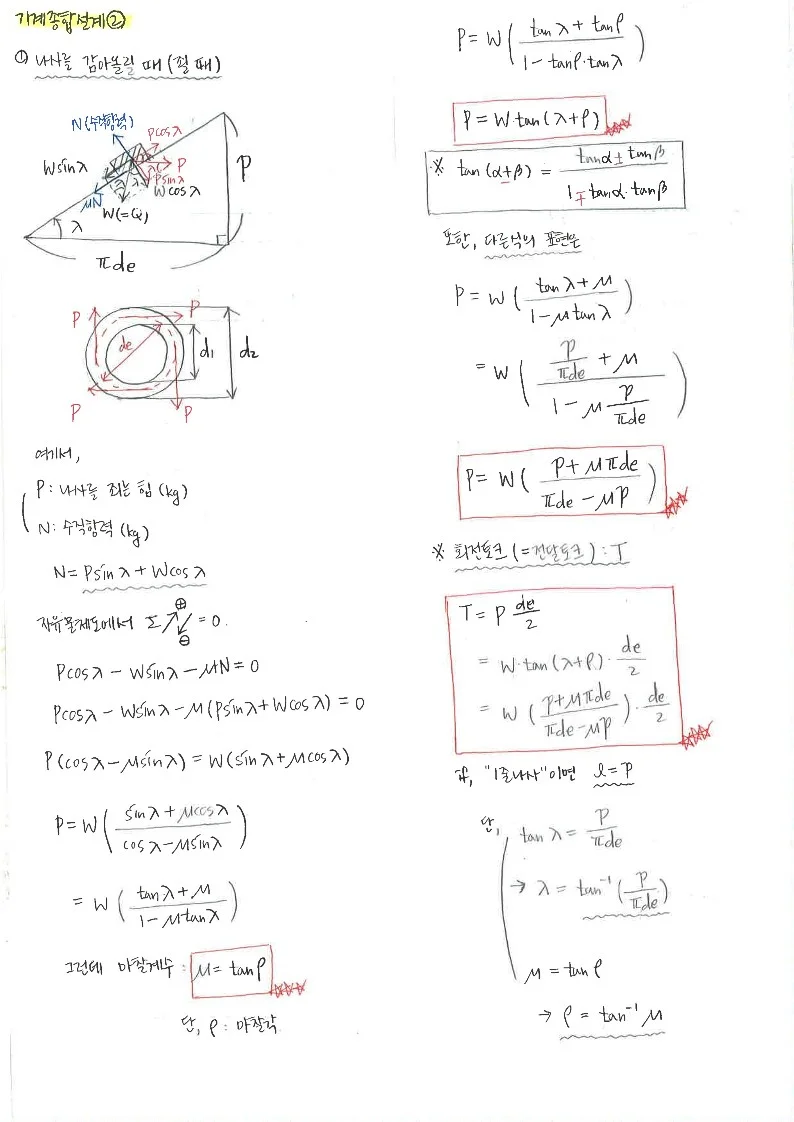 기계종합설계②
① 나사를 감아올릴 때 (죌 때)
N(수직항력)
Pcosλ
Wsinλ
P
Psinλ
Wcosλ
μN
W(=Q)
λ
p
πde
P
P
de
d₁
d₂
P
P
여기서,
P: 나사를 죄는 힘 (kg)
N: 수직항력 (kg)
N= Psinλ + Wcosλ
자유물체도에서 Σ ⊕ ⊖ = 0.
Pcosλ - Wsinλ - μN = 0
Pcosλ - Wsinλ - μ(Psinλ + Wcosλ) = 0
P(cosλ - μsinλ) = W(sinλ + μcosλ)
P = W( (sinλ + μcosλ) / (cosλ - μsinλ) )
= W( (tanλ + μ) / (1 - μtanλ) )
그런데 마찰계수 : μ = tanρ
단, ρ : 마찰각
P = W( (tanλ + tanρ) / (1 - tanρ·tanλ) )
P = W tan(λ+ρ)
※ tan(α±β) = (tanα ± tanβ) / (1 ∓ tanα·tanβ)
또한, 다른식의 표현은
P = W( (tanλ + μ) / (1 - μtanλ) )
= W( (p/πde + μ) / (1 - μ p/πde) )
P = W( (p + μπde) / (πde - μp) )
※ 회전토크 (=전달토크) : T
T = P de/2
= W·tan(λ+ρ)·de/2
= W( (p + μπde) / (πde - μp) )·de/2
if, "1줄나사"이면 l = p
단, tanλ = p/πde
→ λ = tan⁻¹(p/πde)
μ = tanρ
→ ρ = tan⁻¹μ